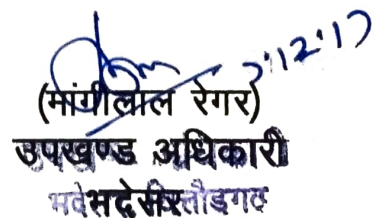 7.12.17
(मांगीलाल रेगर)
उपखण्ड अधिकारी
भदेसर